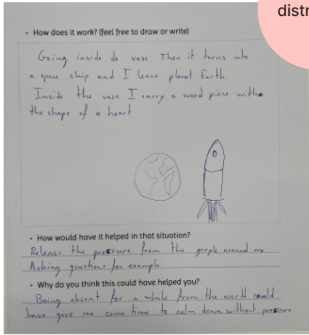 distr
• How does it work? (feel free to draw or write)
Going inside de vase. Then it turns into
a space ship and I leave planet Earth
Inside the vase I carry a wood piece with
the shape of a heart
• How would have it helped in that situation?
Release the pressure from the people around me
Asking questions for example
• Why do you think this could have helped you?
Being absent for a while from the world could
have give me some time to calm down without pressure